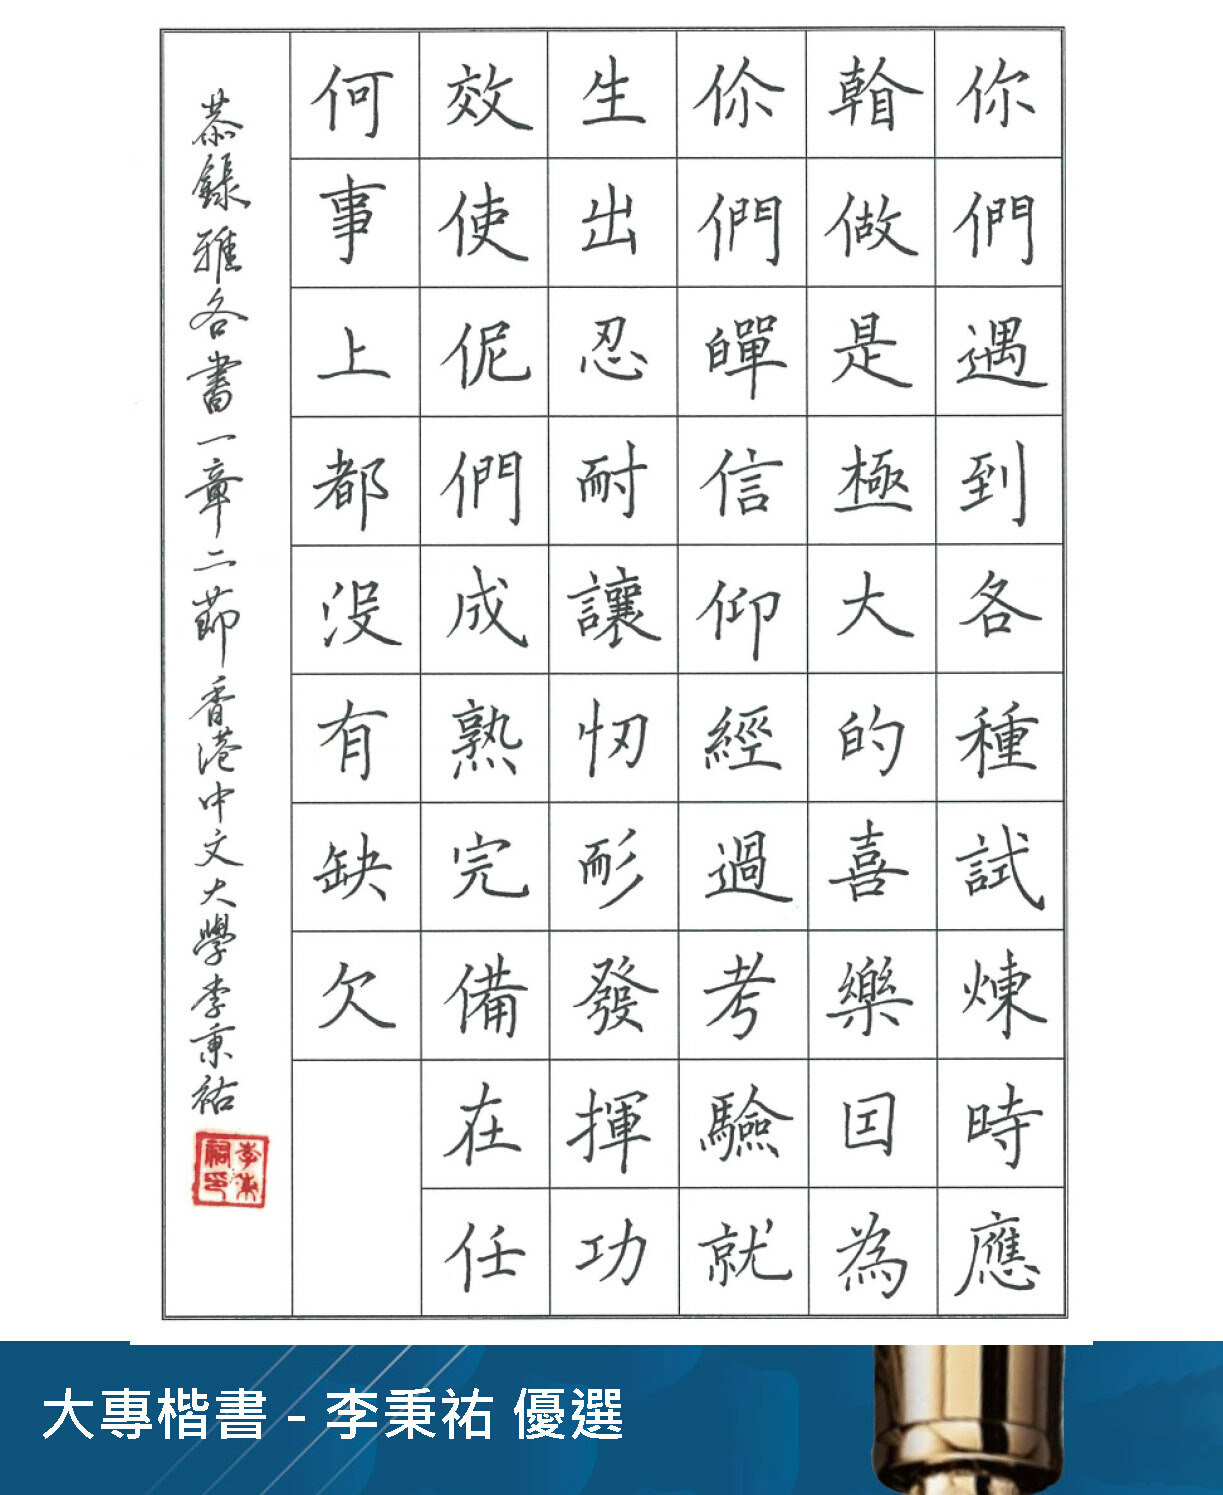 你們遇到各種試煉時應
做是極大的喜樂囙為
伱們信仰經過考驗就
生出忍耐讓㣼耏發揮功
效使伲們成熟完備在任
何事上都沒有缺欠
恭錄雅各書一章二節香港中文大學李秉祐
李秉祐印
大專楷書 - 李秉祐 優選